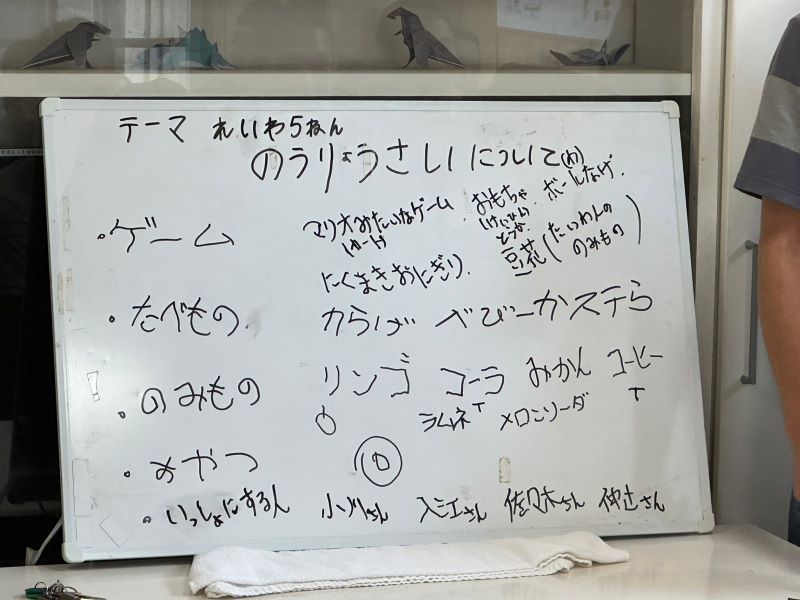 テーマ れいわ5ねん
のうりょうさいについて(わ)
・ゲーム マリオみたいなゲーム おもちゃ ボールなげ
にくまきおにぎり 豆花(たいわんの
のみもの)
・たべもの からげ べびーかステら
・のみもの リンゴ コーラ みかん コーヒー
ラムネ メロンソーダ
・おやつ 10
・いっしょにする人 小川さん 入江さん 佐々木さん 仲辻さん